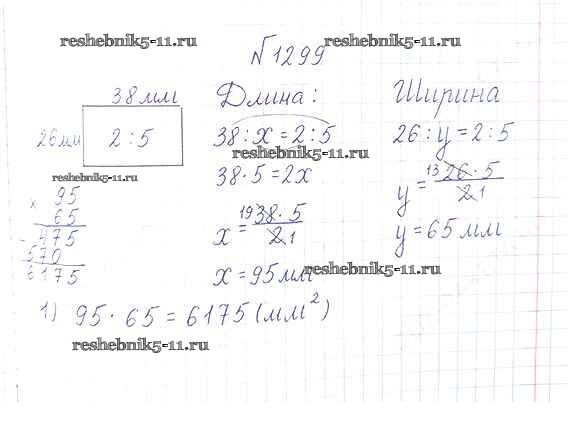 reshebnik5-11.ru reshebnik5-11.ru
№1299
38мм
26мм 2 : 5
Длина:
38 : x = 2 : 5
reshebnik5-11.ru
38 · 5 = 2x
x = 19 38 · 5 / 2 1
x = 95мм
Ширина
26 : y = 2 : 5
reshebnik5-11.ru
y = 13 26 · 5 / 2 1
y = 65 мм
reshebnik5-11.ru
reshebnik5-11.ru
× 95
65
475
570
6175
1) 95 · 65 = 6175 (мм²)
reshebnik5-11.ru